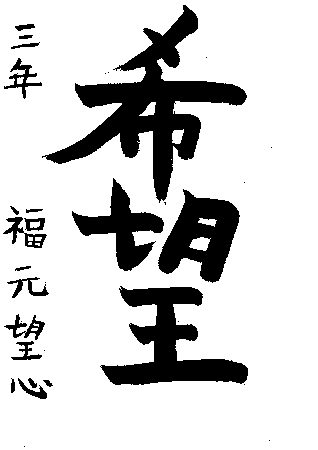 希望
三年 福元望心